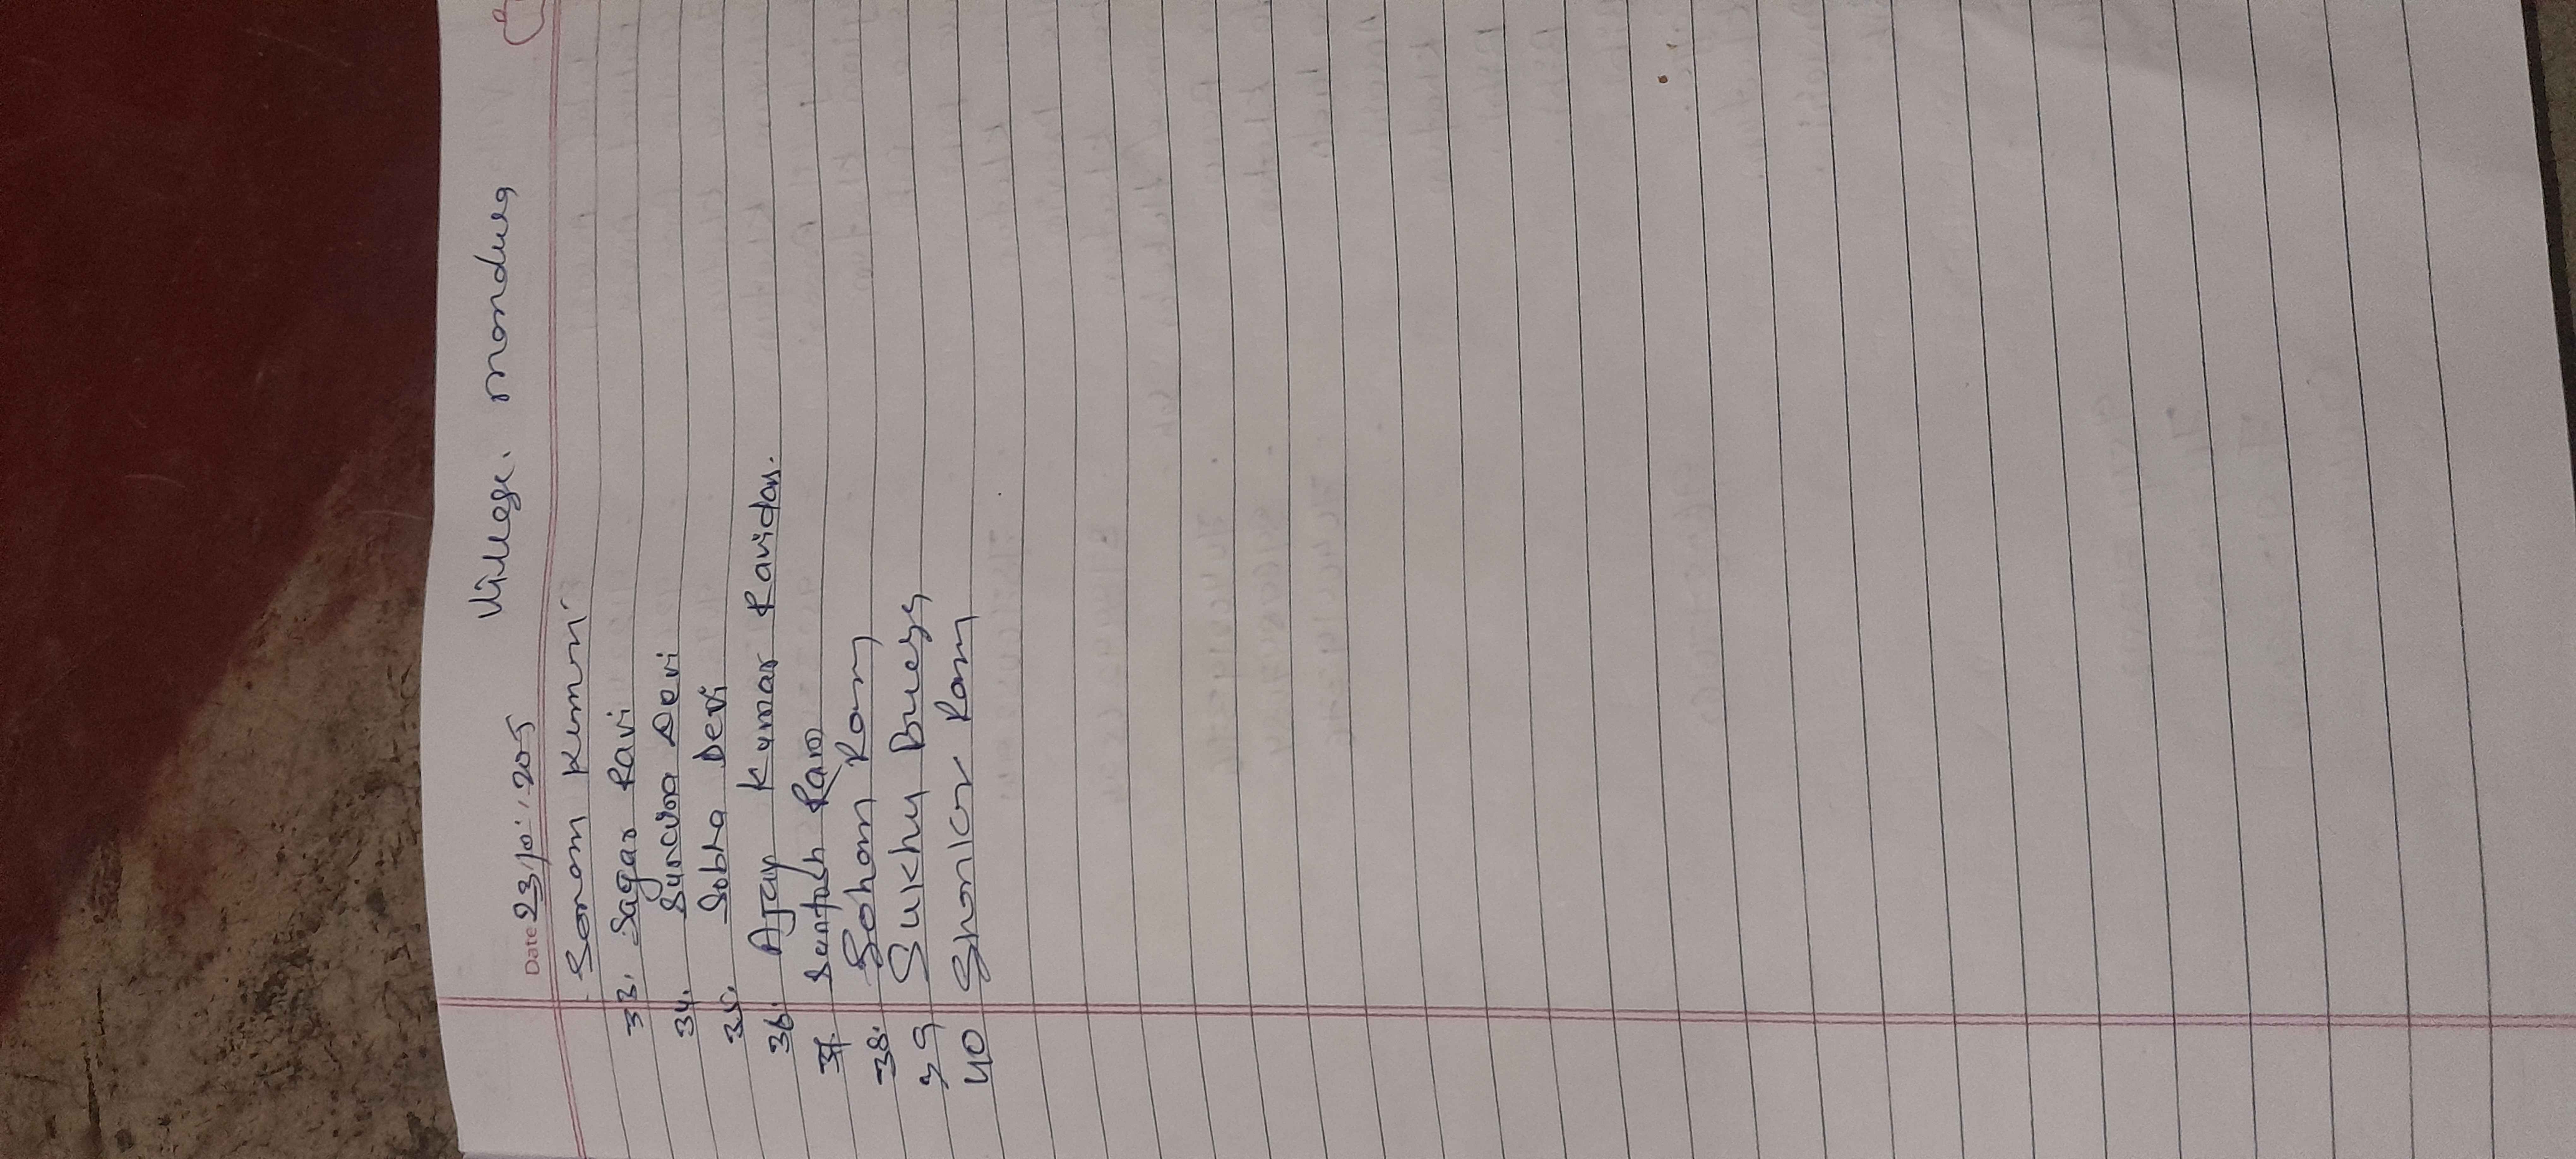 Date 23/10/2025 Village. mondung
Sonam Kumari
33. Sagar Ravi
34. Surcdra Devi
35. Sobha Devi
36. Ajay Kumar Ravidas.
37. Santosh Ram
38. Sohan Ram
39 Sukhu
40 Ram